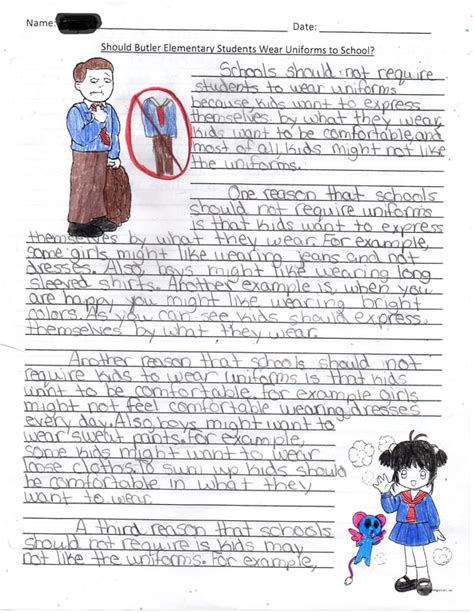 Name: Date:
Should Butler Elementary Students Wear Uniforms to School?
Schools should not require
students to wear uniforms
because kids want to express
themselves by what they wear,
kids want to be comfortable, and
most of all kids might not like
the uniforms.
One reason that schools
should not require uniforms
is that kids want to express
themselves by what they wear. For example,
some girls might like wearing jeans and not
dresses. Also boys might like wearing long
sleeved shirts. Another example is, when you
are happy you might like wearing bright
colors. As you can see kids should express
themselves by what they wear.
Another reason that schools should not
require kids to wear uniforms is that kids
want to be comfortable. For example girls
might not feel comfortable wearing dresses
every day. Also, boys might want to
wear sweat pants. For example,
some kids might want to wear
loose cloths. To sum up kids should
be comfortable in what they
want to wear.
A third reason that schools
should not require is kids may
not like the uniforms. For example,